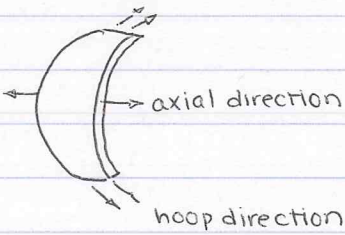 axial direction
hoop direction